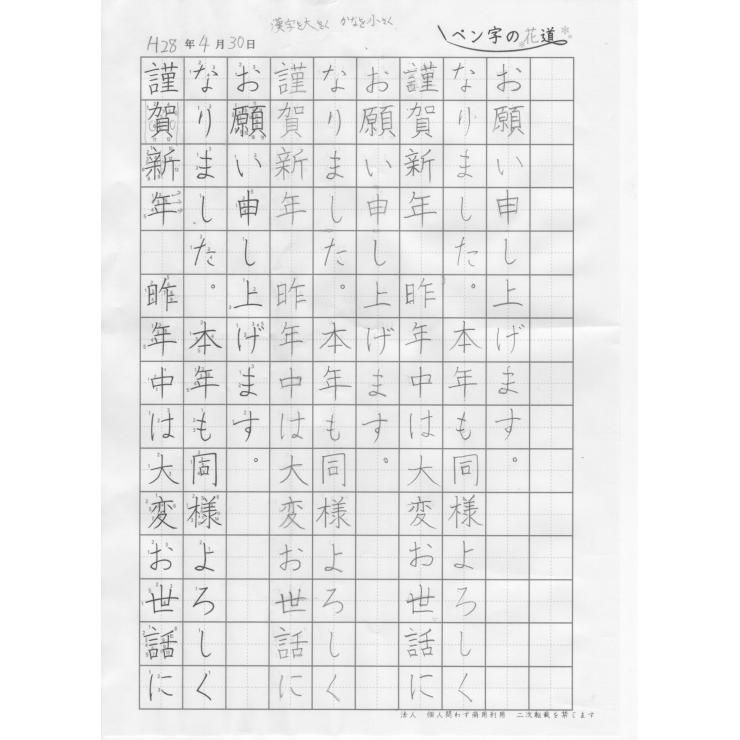 漢字を大きく かなを小さく
H28年4月30日
ペン字の花道
謹賀新年 昨年中は大変お世話に
なりました。本年も同様よろしく
お願い申し上げます。
謹賀新年 昨年中は大変お世話に
なりました。本年も同様よろしく
お願い申し上げます。
謹賀新年 昨年中は大変お世話に
なりました。本年も同様よろしく
お願い申し上げます。
法人 個人問わず商用利用 二次転載を禁じます